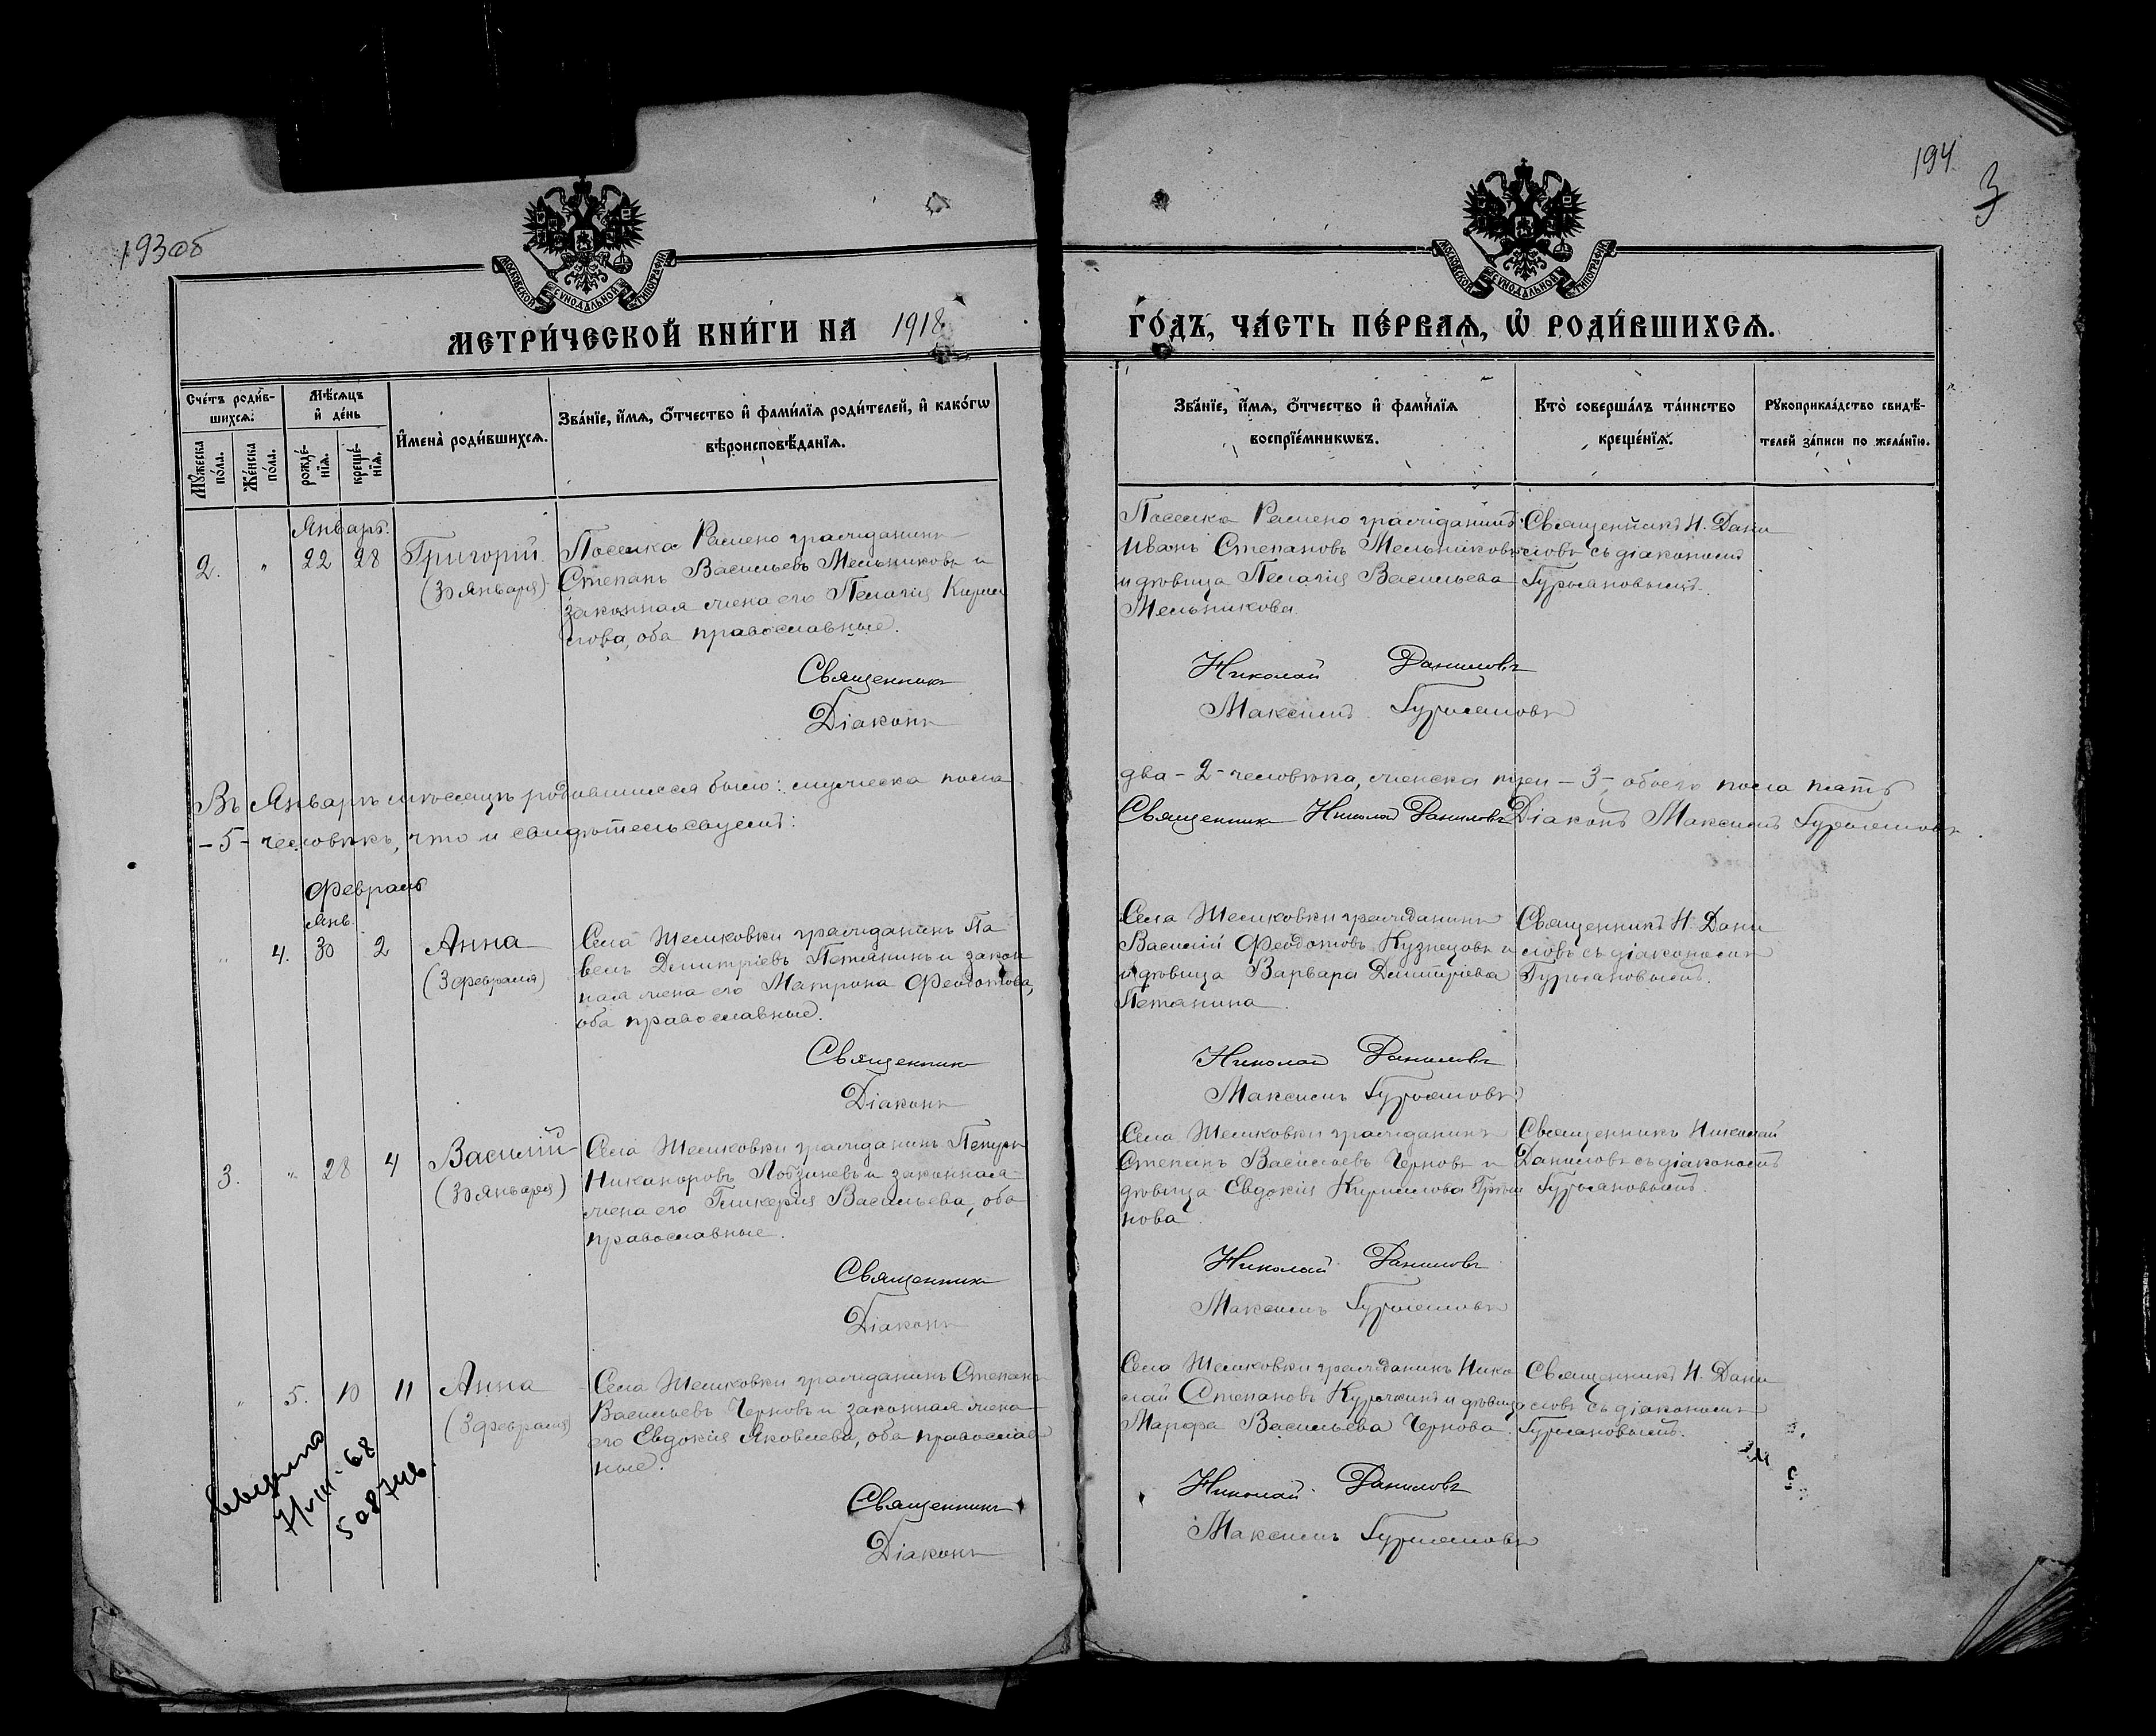 193об
194
3
МОСКОВСКОЙ СѴНОДАЛЬНОЙ ТИПОГРАФІИ
МОСКОВСКОЙ СѴНОДАЛЬНОЙ ТИПОГРАФІИ
МЕТРИ́ЧЕСКОЙ КНИ́ГИ НА 1918
ГО́ДЪ, ЧА́СТЬ ПЕ́РВАѦ, Ѽ РОДИ́ВШИХСѦ.
Сче́тъ роди́в-
шихсѧ:
Мꙋ́жеска
по́ла.
Же́нска
по́ла.
Мѣ́сѧцъ
и҆ де́нь
рожде́-
нїѧ.
креще́-
нїѧ.
И҆мена̀ роди́вшихсѧ.
Зва́нїе, и҆́мѧ, ѻ҆́тчество и҆ фами́лїѧ роди́телей, и҆ како́гѡ
вѣроисповѣ́данїѧ.
Зва́нїе, и҆́мѧ, ѻ҆́тчество и҆ фами́лїѧ
воспрїе́мникѡвъ.
Кто̀ соверша́лъ та́инство
креще́нїѧ.
Рꙋкоприкла́дство свидѣ́-
телей за́писи по жела́нїю.
Январь.
2. " 22 28 Григорій
(30 января)
Поселка Рамено гражданинъ
Степанъ Васильевъ Мельниковъ и
законная жена его Пелагія Кирил
лова, оба православные.
Священникъ
Діаконъ
Поселка Рамено гражданинъ
Иванъ Степановъ Мельниковъ
и дѣвица Пелагія Васильева
Мельникова.
Священникъ Н. Дани
ловъ съ діакономъ
Николай Даниловъ
Максимъ
Въ Январѣ мѣсяцѣ родившихся было: мужеска пола
два - 2 - человѣка, женска три - 3, обоего пола пять
- 5 - человѣкъ, что и свидѣтельствуемъ:
Священникъ Николай Даниловъ Діаконъ Максимъ
Февраль
Янв.
" 4. 30 2 Анна
(3 февраля)
Села Шелковки гражданинъ Па
велъ Димитріевъ Петянинъ и закон
ная жена его Матрона Феодотова,
оба православные.
Священникъ
Діаконъ
Села Шелковки гражданинъ
Василій Феодотовъ Кузнецовъ и
дѣвица Варвара Димитріева
Петянина.
Священникъ Н. Дани
ловъ съ діакономъ
Николай Даниловъ
Максимъ
3. " 28 4 Василій
(30 января)
Села Шелковки гражданинъ Петръ
Никаноровъ Лобзиневъ и законная
жена его Гликерія Васильева, оба
православные.
Священникъ
Діаконъ
Села Шелковки гражданинъ
Степанъ Васильевъ Черновъ и
дѣвица Евдокія Кириллова
нова.
Священникъ Николай
Даниловъ съ діакономъ
Николай Даниловъ
Максимъ
" 5. 10 11 Анна
(3 февраля)
Села Шелковки гражданинъ Степанъ
Васильевъ Черновъ и законная жена
его Евдокія Яковлева, оба православ
ные.
Священникъ
Діаконъ
Села Шелковки гражданинъ Нико
лай Степановъ Курочкинъ и дѣвица
Марфа Васильева Чернова.
Священникъ Н. Дани
ловъ съ діакономъ
Николай Даниловъ
Максимъ
7/VIII-68